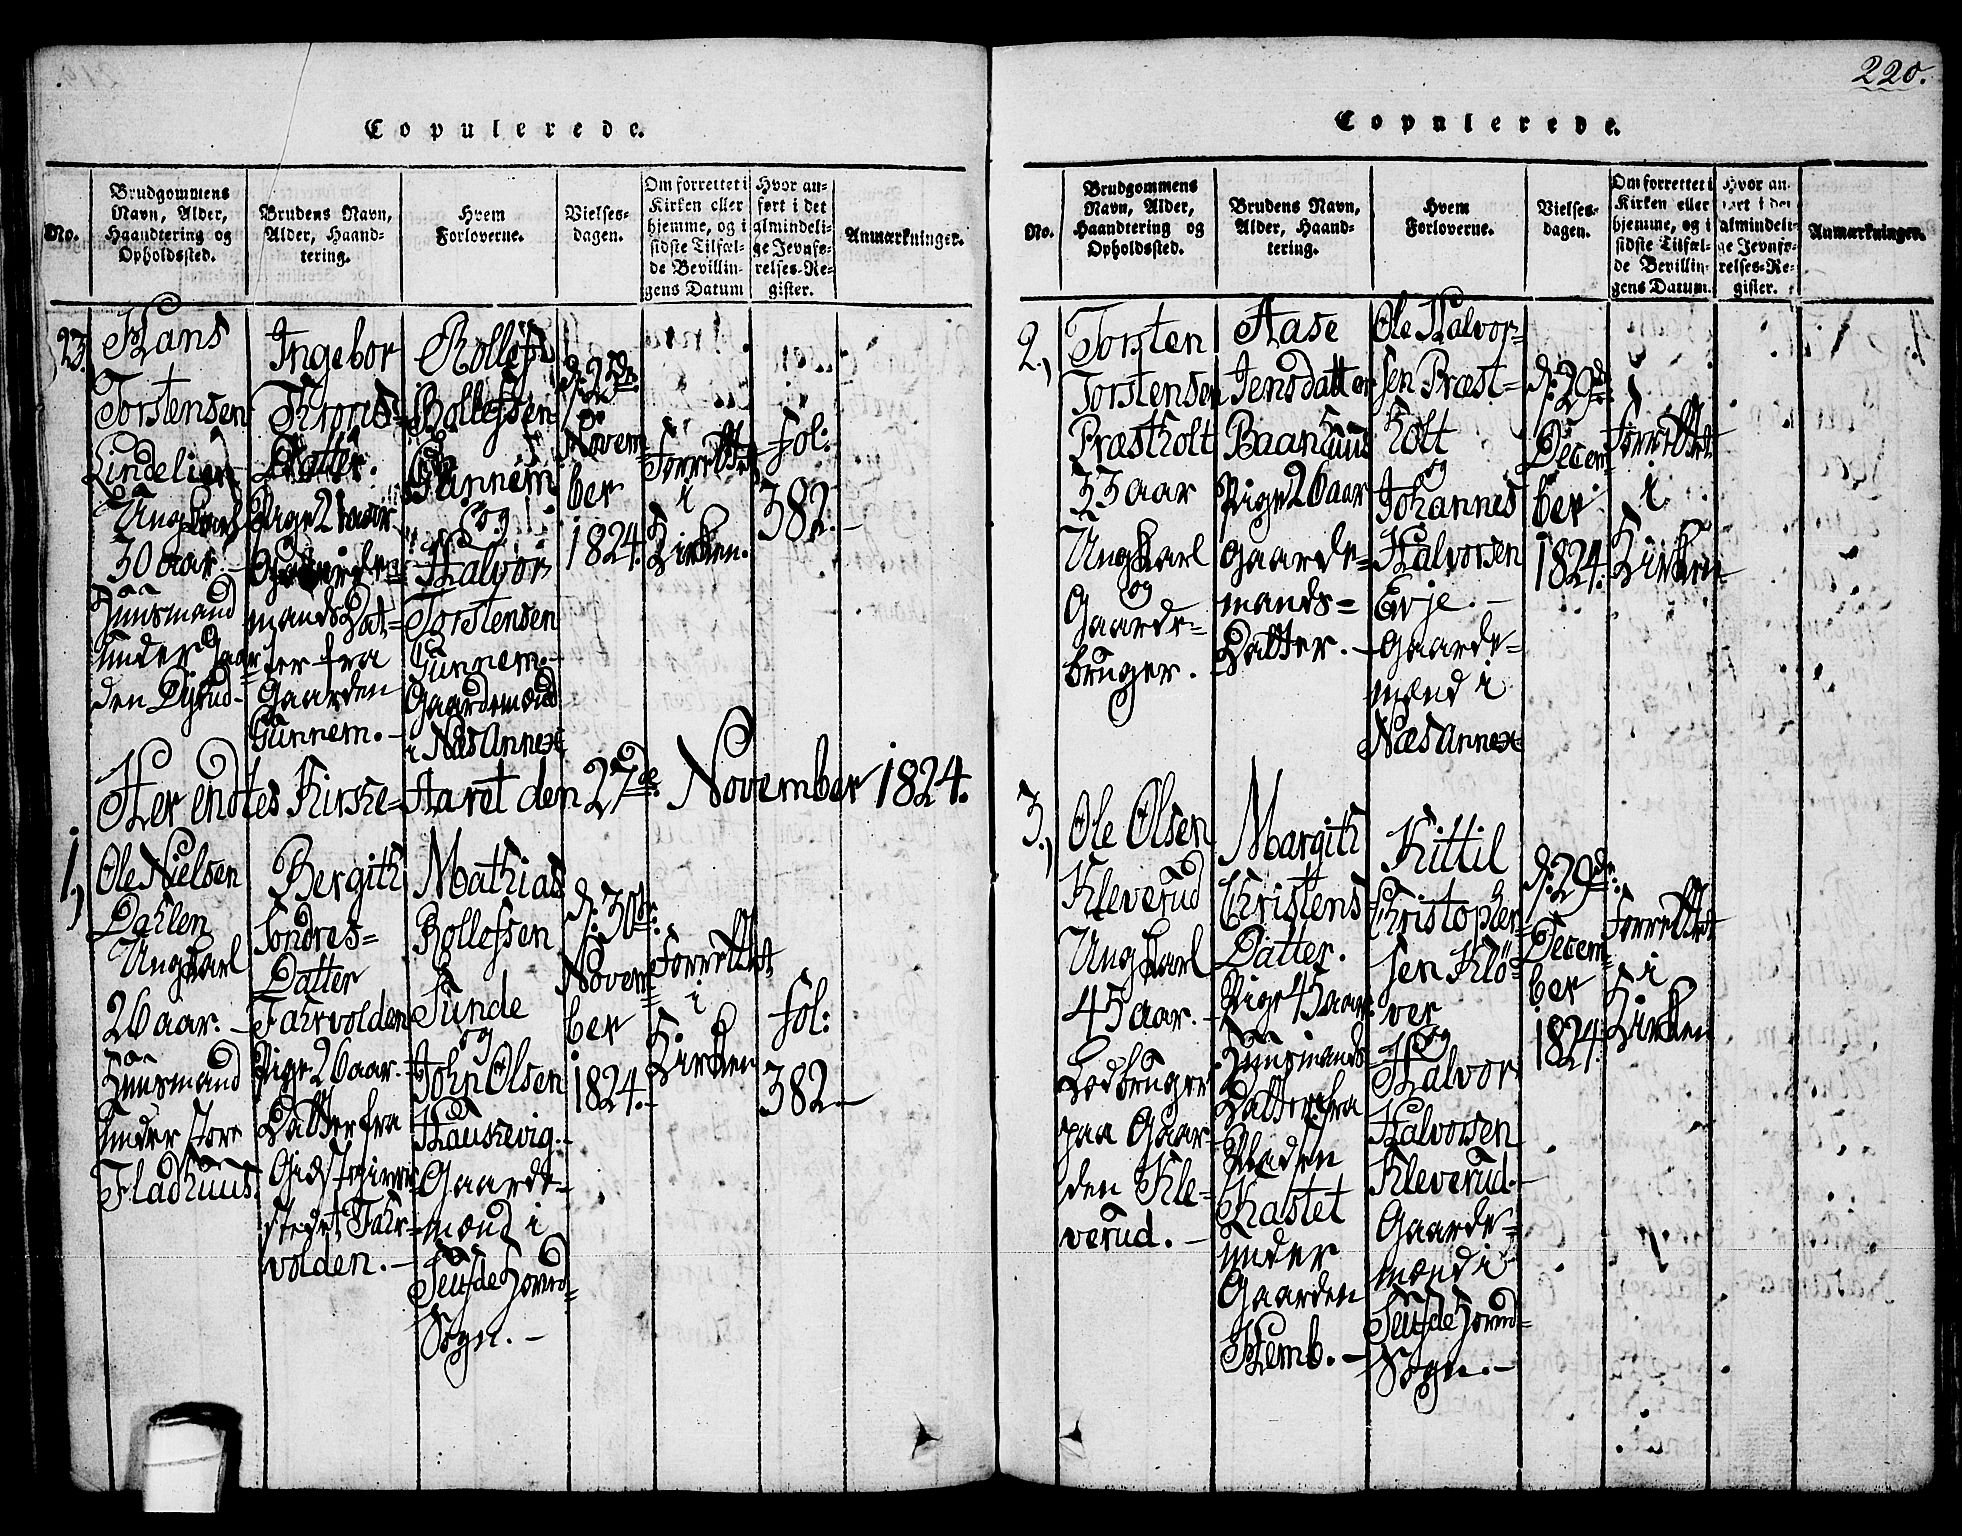 220.
Copulerede.
No.
Brudgommens
Navn, Alder,
Haandtering og
Opholdssted.
Brudens Navn,
Alder, Haand-
tering.
Hvem
Forloverne.
Vielses-
dagen.
Om forrettet i
Kirken eller
hjemme, og i
sidste Tilfæl-
de Bevillin-
gens Datum
Hvor an-
ført i det
almindeli-
ge Jevnfø-
relses-Re-
gister.
Anmærkninger.
23.)
Hans
Torstensen
Lindelien
Ungkarl
30 aar.-
Huusmand
under Gaar
den Disrud-
Ingebor
Thores=
Datter.
Pige 21 aar
Gaarde
mands Dat=
ter fra
Gaarden
Gunnem.-
Rollef
Rollefsen
Gunnem
og
Halvor
Torstensen
Gunnem.-
Gaardemænd
i Næs Annex
d: 25de
Novem
ber
1824.
Forrettet
i
Kirken.
fol:
382.-
Her endtes Kirke-Aaret den 27de November 1824.
1.)
Ole Nielsen
Dahlen
Ungkarl
26 aar.-
Huusmand
under store
Fladhuus.
Bergith
Sondres=
Datter
Fahrvolden
Pige 26 aar.-
Datter fra
Gidstgiver
stedet Fahr=
volden.-
Mathias
Rollefsen
Sunde
og
John Olsen
Haukevig.-
Gaarde=
mænd i
Hoved=
Sogn.-
d: 30te
Novem
ber
1824.-
Forrettet
i
Kirken
fol:
382-
Copulerede.
No.
Brudgommens
Navn, Alder,
Haandtering og
Opholdssted.
Brudens Navn,
Alder, Haand-
tering.
Hvem
Forloverne.
Vielses-
dagen.
Om forrettet i
Kirken eller
hjemme, og i
sidste Tilfæl-
de Bevillin-
gens Datum.
Hvor an-
ført i det
almindeli-
ge Jevnfø-
relses-Re-
gister.
Anmærkninger.
2.)
Torsten
Torstensen
Præstholt
33 aar
Ungkarl
og
Gaarde=
bruger.
Aase
Jensdatter
Baanhuus
Pige 26 aar
Gaarde=
mands=
Datter.-
Ole Halvor=
sen Præst=
holt
og
Johannes
Halvorsen
Evje.-
Gaarde=
mænd i
Næs Annex
d: 29de
Decem
ber
1824.
Forrettet
i
Kirken
3.)
Ole Olsen
Kleverud
Ungkarl
45 aar.-
Lodbruger
paa Gaar
den Kle=
verud.-
Margith
Christens
Datter.
Pige 45 aar.
Huusmands
Datter fra
Pladsen
Kastet
under
Gaarden
Hemb.-
Kittil
Christopher
sen Klö=
ver
og
Halvor
Halvorsen
Kleverud.-
Gaarde=
mænd i
Hoved=
Sogn.-
d: 29de.
Decem
ber
1824.
Forrettet
i
Kirken